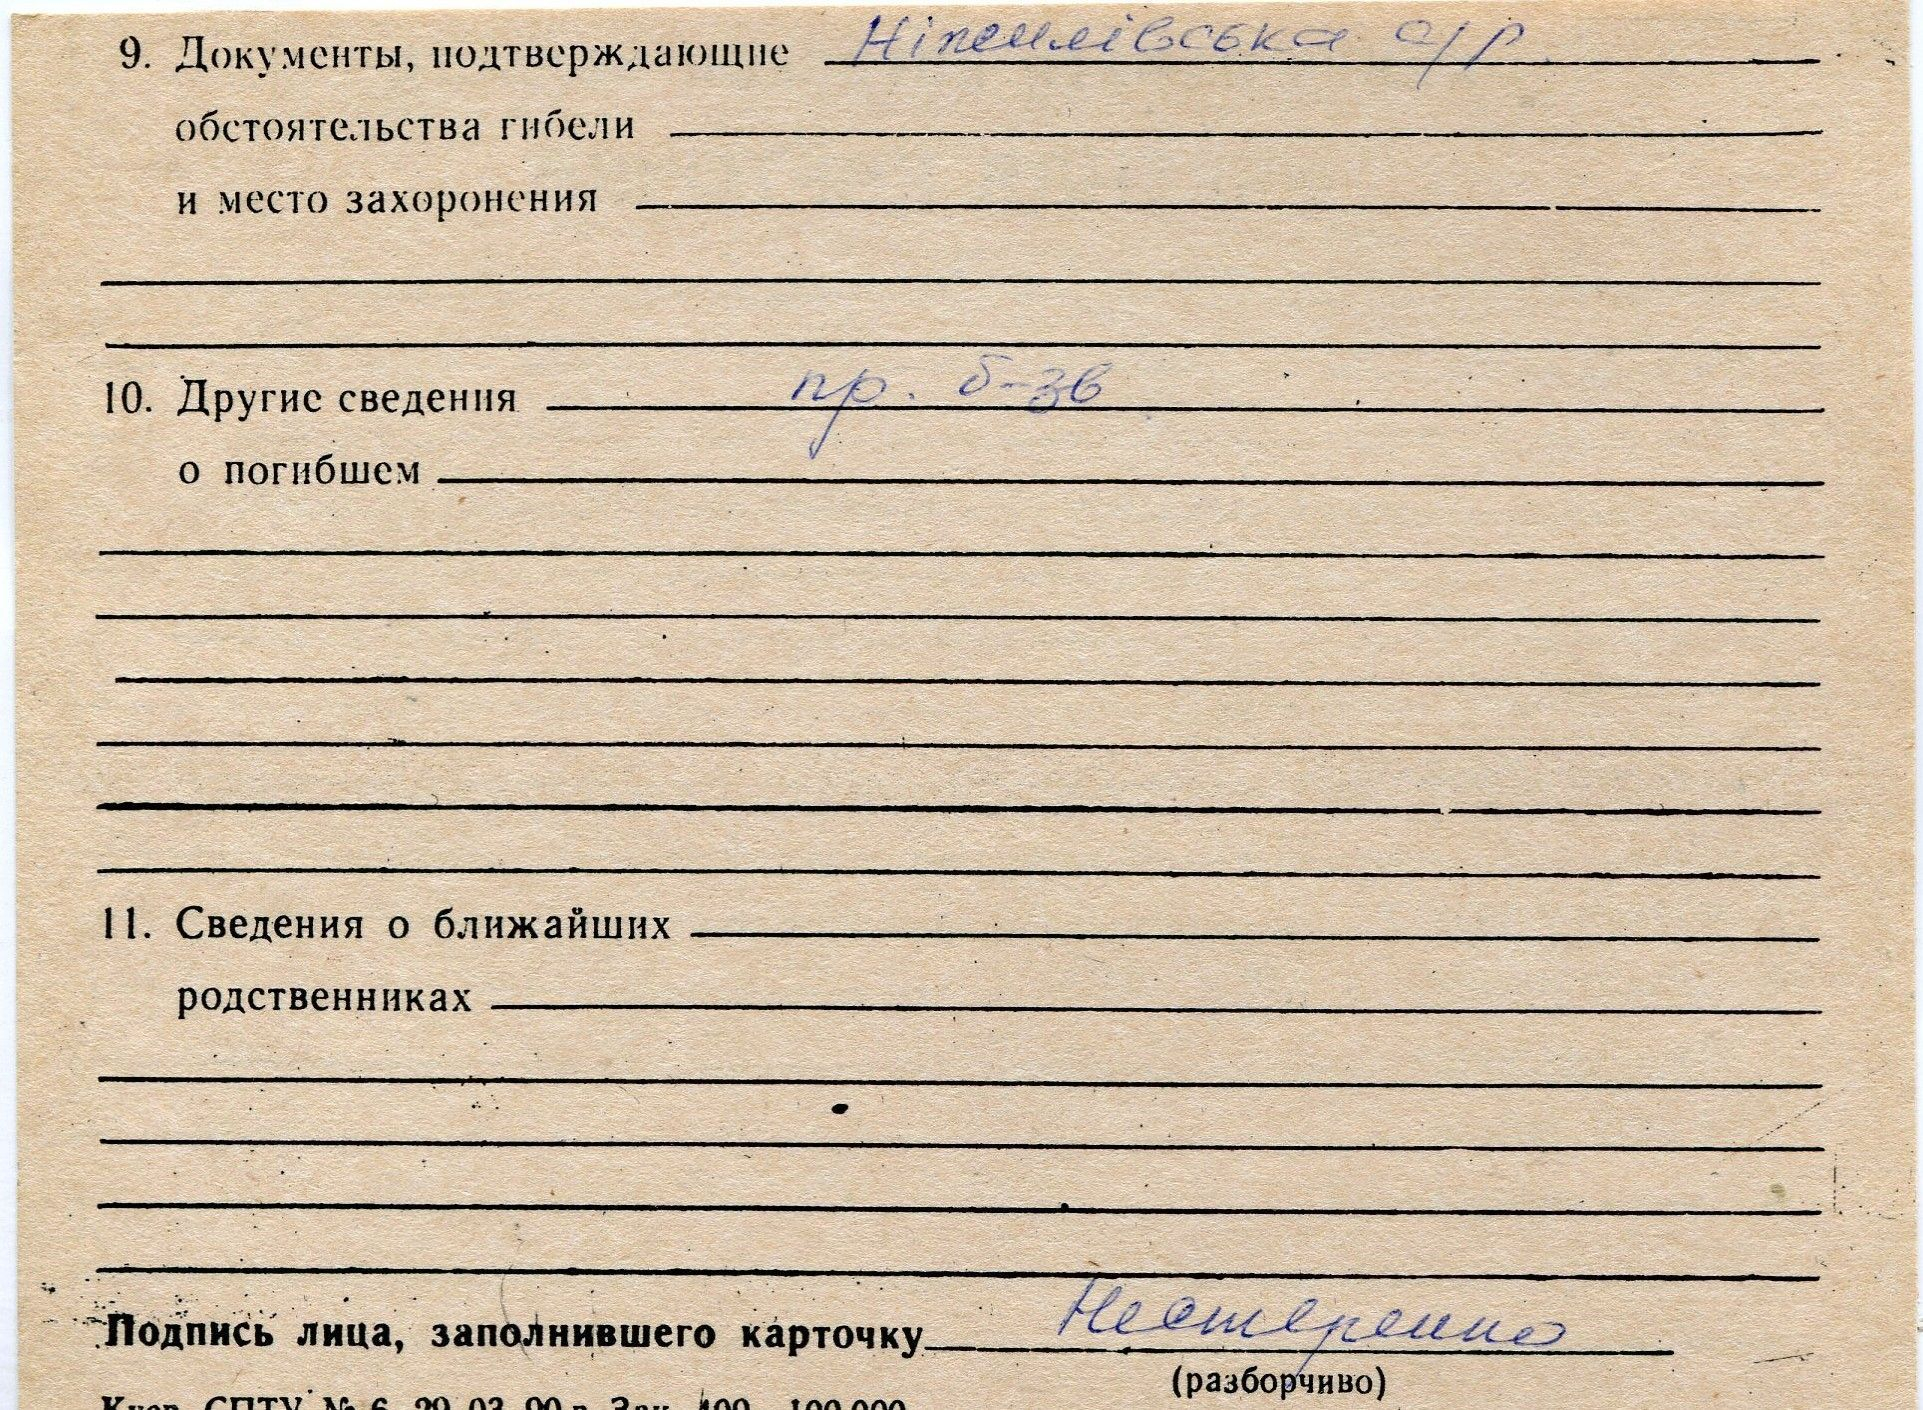 9. Документы, подтверждающие с/р
обстоятельства гибели
и место захоронения
10. Другие сведения пр. б-зв
о погибшем
11. Сведения о ближайших
родственниках
Подпись лица, заполнившего карточку Нестеренко
(разборчиво)
Киев, СПТУ № 6, 29.03.90 г. Зак. 409—100.000